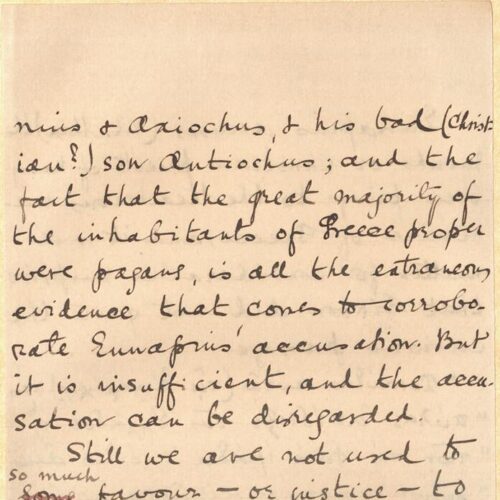 nius & Axiochus, & his bad (Christ-
ian?) son Antiochus; and the
fact that the great majority of
the inhabitants of Greece proper
were pagans, is all the extraneous
evidence that comes to corrobo-
rate Eunapius' accusation. But
it is insufficient, and the accu-
sation can be disregarded
Still we are not used to
so much
some favour — or justice — to